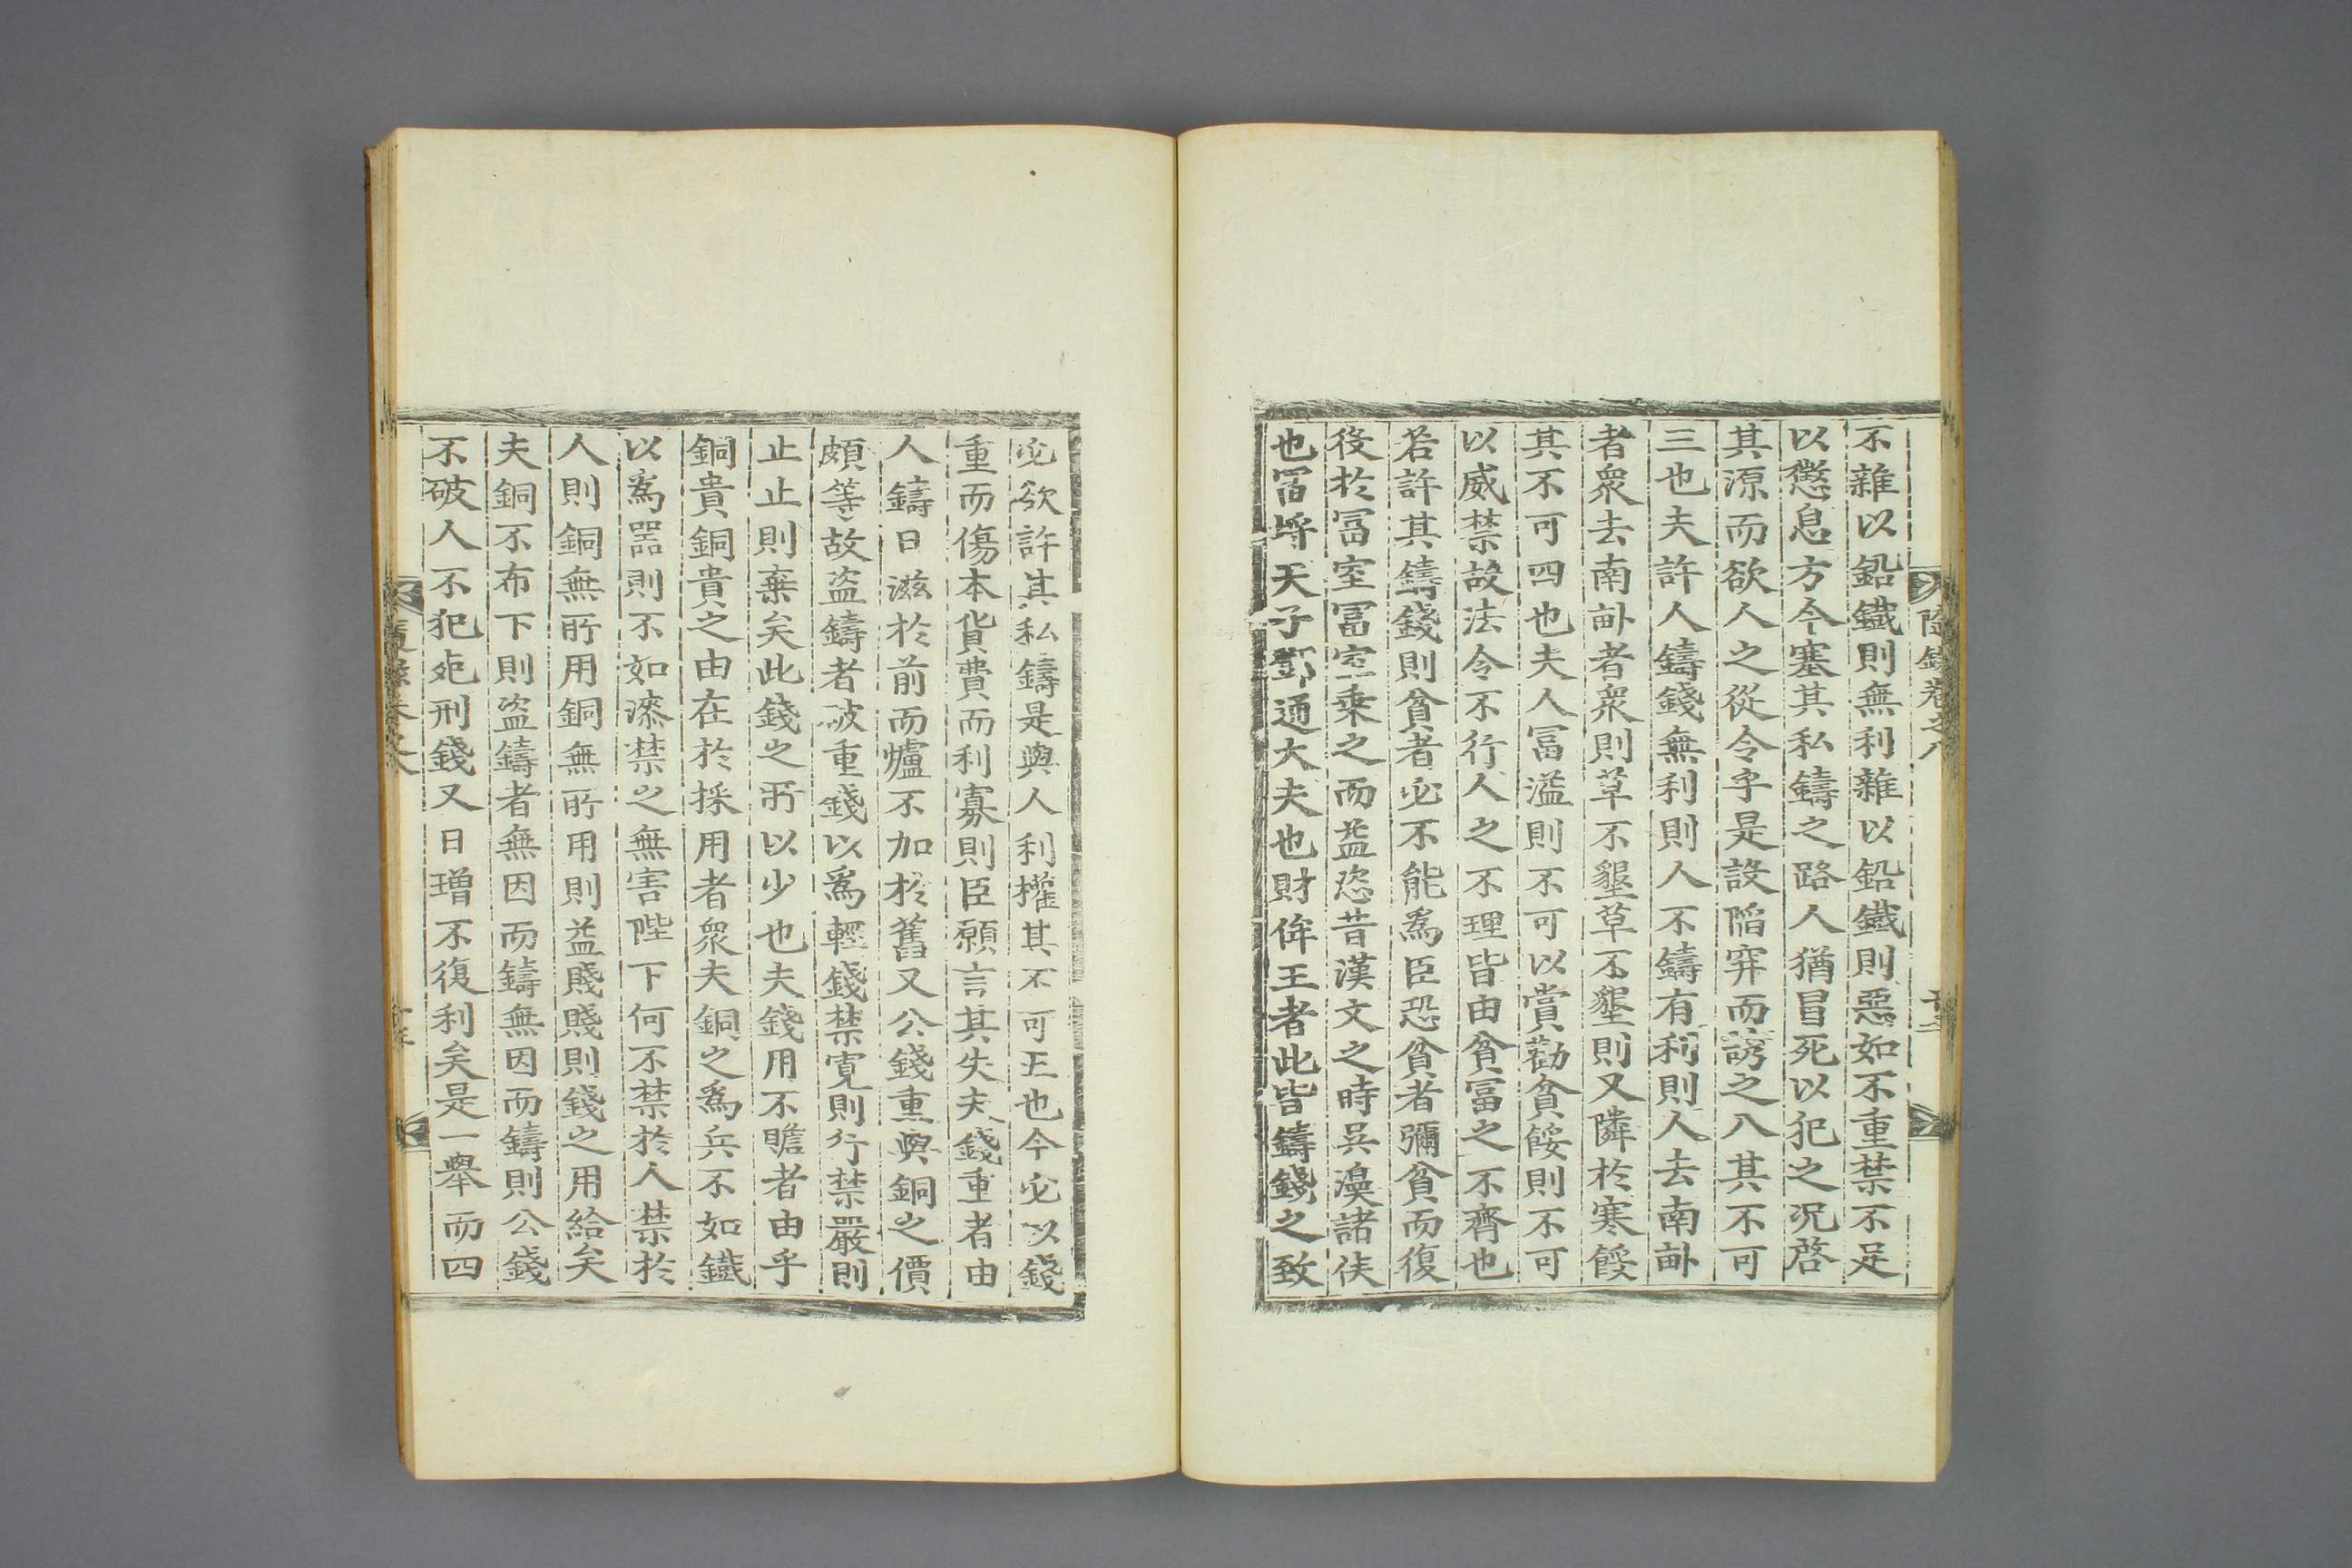 隨録卷之八
不雜以鉛鐵則無利雜以鉛鐵則惡如不重禁不足
以懲息方今塞其私鑄之路人猶冒死以犯之况啓
其源而欲人之從令乎是設陷穽而誘之八其不可
三也夫許人鑄錢無利則人不鑄有利則人去南畒
者衆去南畒者衆則草不墾草不墾則又隣於寒餒
其不可四也夫人冨溢則不可以賞勸貧餒則不可
以威禁故法令不行人之不理皆由貧冨之不齊也
若許其鑄錢則貧者必不能爲臣恐貧者彌貧而復
役於冨室冨室乗之而益恣昔漢文之時吳濞諸侯
也冨埒天子鄧通大夫也財侔王者此皆鑄錢之致
必欲許其私鑄是與人利權其不可五也今必以錢
重而傷本貨費而利寡則臣願言其失夫錢重者由
人鑄日滋於前而爐不加於舊又公錢重與銅之價
頗等故盗鑄者破重錢以爲輕錢禁寛則行禁嚴則
止止則棄矣此錢之所以少也夫錢用不贍者由乎
銅貴銅貴之由在於採用者衆夫銅之爲兵不如鐵
以爲器則不如漆禁之無害陛下何不禁於人禁於
人則銅無所用銅無所用則益賤賤則錢之用給矣
夫銅不布下則盗鑄者無因而鑄無因而鑄則公錢
不破人不犯死刑錢又日增不復利矣是一舉而四